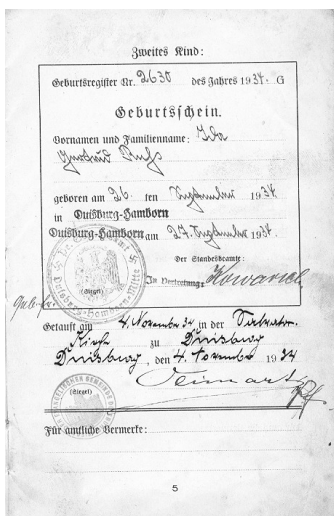 Zweites Kind:
Geburtsregister Nr. 2630 des Jahres 1934. G
Geburtsschein.
Vornamen und Familienname: Ida
Gertrud
geboren am 26. ten September 1934
in Duisburg-Hamborn
Duisburg-Hamborn am 27. September 1934.
Der Standesbeamte:
In Vertretung:
(Siegel)
Getauft am 4. November 34 in der Salvator-
Kirche zu Duisburg
Duisburg, den 4. November 1934
(Siegel)
Für amtliche Vermerke:
5